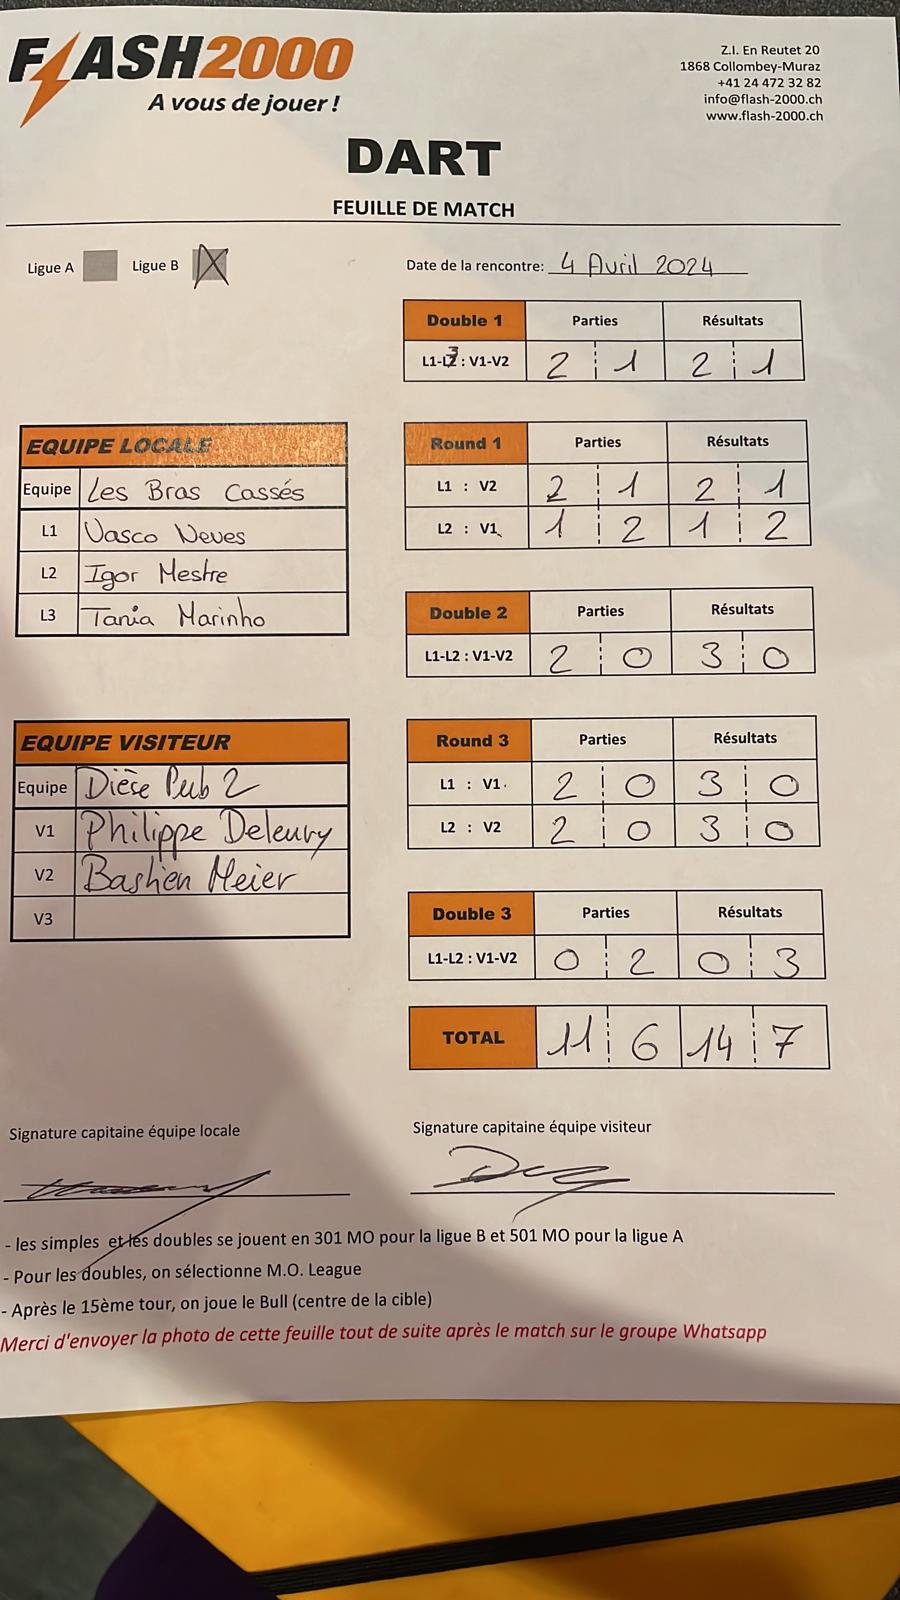 FLASH2000
A vous de jouer !
Z.I. En Reutet 20
1868 Collombey-Muraz
+41 24 472 32 82
info@flash-2000.ch
www.flash-2000.ch
DART
FEUILLE DE MATCH
Ligue A Ligue B X
Date de la rencontre: 4 Avril 2024
Double 1 Parties Résultats
L1-L3 : V1-V2 2 1 2 1
EQUIPE LOCALE
Equipe Les Bras Cassés
L1 Vasco Neves
L2 Igor Mestre
L3 Tania Marinho
Round 1 Parties Résultats
L1 : V2 2 1 2 1
L2 : V1 1 2 1 2
Double 2 Parties Résultats
L1-L2 : V1-V2 2 0 3 0
EQUIPE VISITEUR
Equipe Dièse Pub 2
V1 Philippe Deleury
V2 Bastien Meier
V3
Round 3 Parties Résultats
L1 : V1 2 0 3 0
L2 : V2 2 0 3 0
Double 3 Parties Résultats
L1-L2 : V1-V2 0 2 0 3
TOTAL 11 6 14 7
Signature capitaine équipe locale
Signature capitaine équipe visiteur
- les simples et les doubles se jouent en 301 MO pour la ligue B et 501 MO pour la ligue A
- Pour les doubles, on sélectionne M.O. League
- Après le 15ème tour, on joue le Bull (centre de la cible)
Merci d'envoyer la photo de cette feuille tout de suite après le match sur le groupe Whatsapp